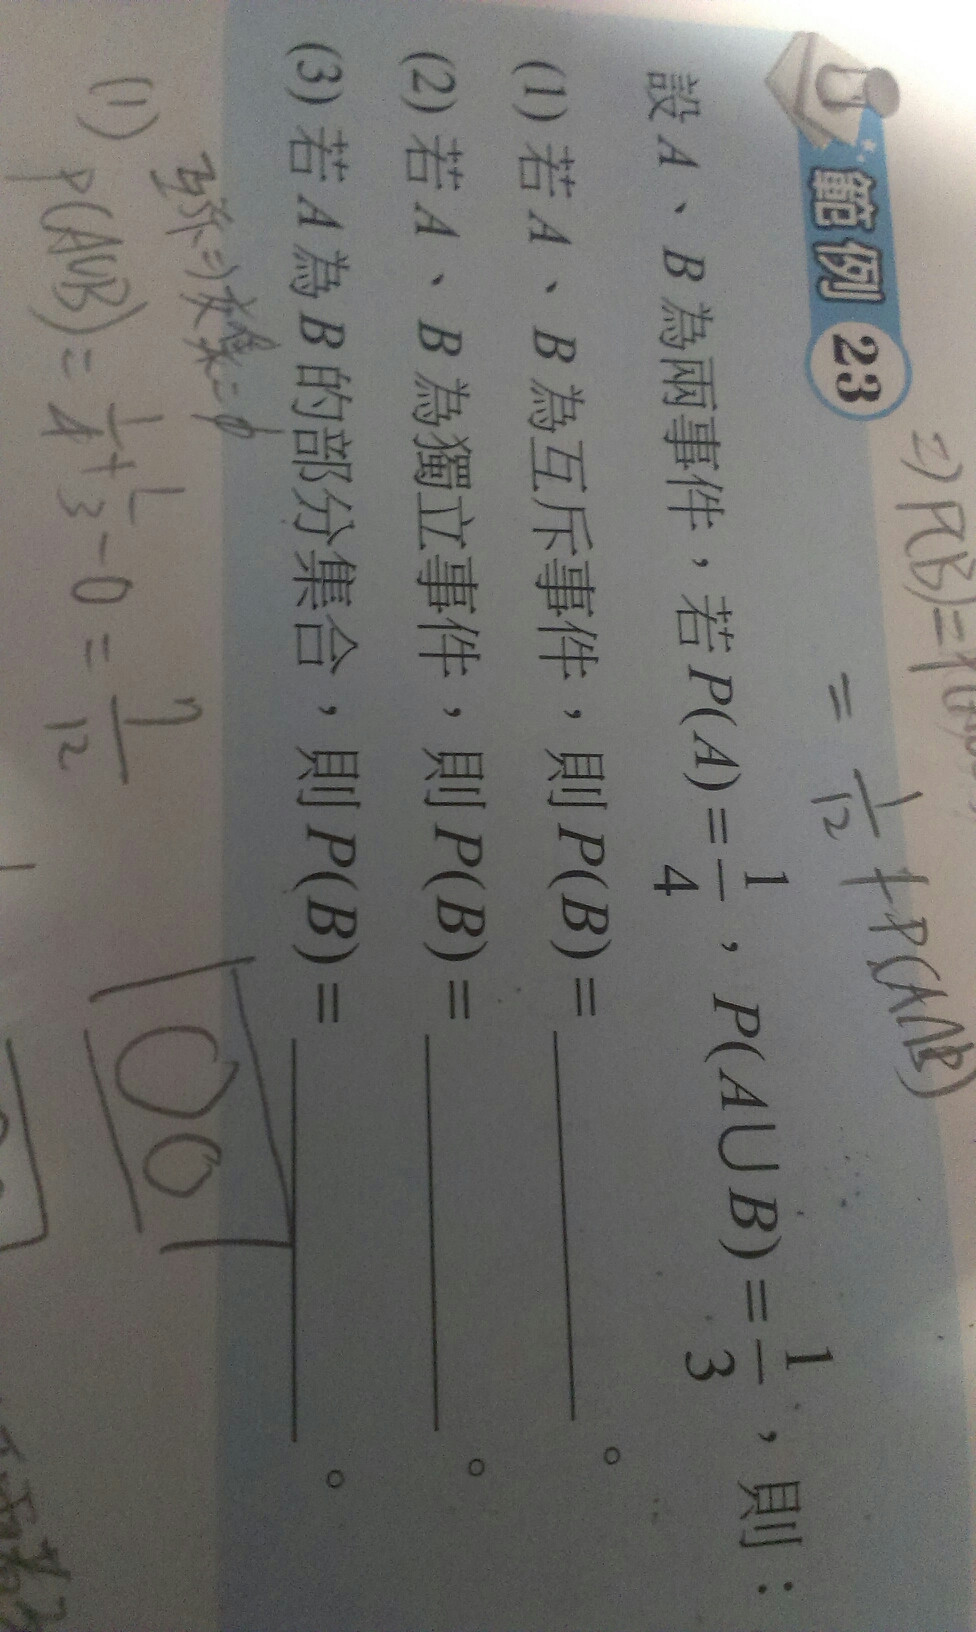 範例 23
設A、B為兩事件，若P(A)=1/4，P(A∪B)=1/3，則：
(1) 若A、B為互斥事件，則P(B)=＿＿＿＿。
(2) 若A、B為獨立事件，則P(B)=＿＿＿＿。
(3) 若A為B的部分集合，則P(B)=＿＿＿＿。
2) P(B)=
= 1/12 + P(A∩B)
(1) 互斥=>
P(A∪B)=1/4+1/3-0=7/12